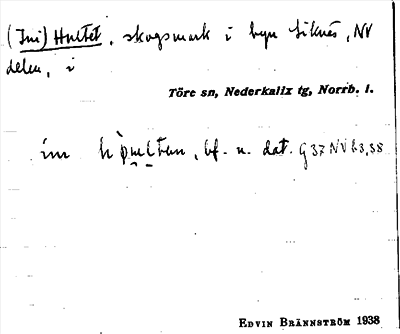 (Ini) Hultet, skogsmark i byn Siknäs, NV
delen, i
Töre sn, Nederkalix tg, Norrb. l.
im , bf. n. dat. G 37 NV
EDVIN BRÄNNSTRÖM 1938